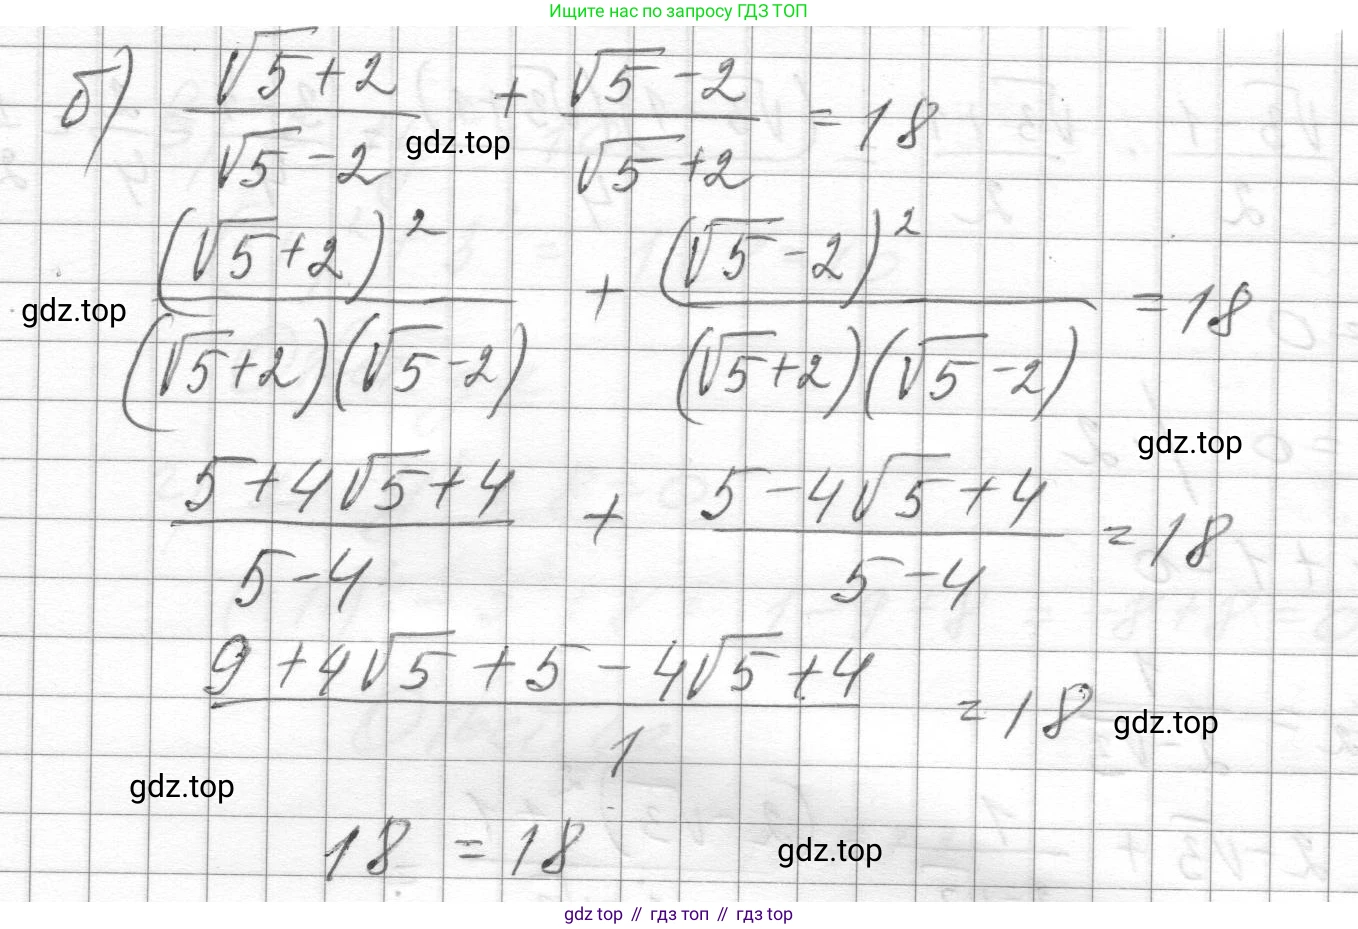 Ищите нас по запросу ГДЗ ТОП
б) (√5 + 2)/(√5 - 2) + (√5 - 2)/(√5 + 2) = 18
gdz.top
(√5 + 2)²/((√5 + 2)(√5 - 2)) + (√5 - 2)²/((√5 + 2)(√5 - 2)) = 18
gdz.top
gdz.top
(5 + 4√5 + 4)/(5 - 4) + (5 - 4√5 + 4)/(5 - 4) = 18
(9 + 4√5 + 5 - 4√5 + 4)/1 = 18
gdz.top
gdz.top
18 = 18
gdz.top
gdz top // гдз топ // gdz top